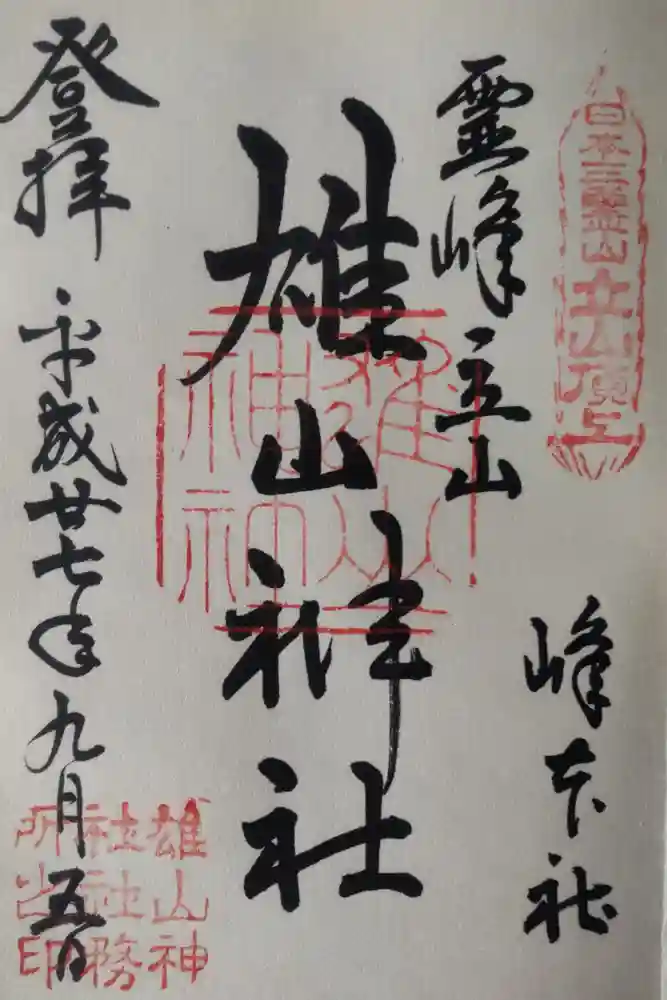 日本三霊山立山頂上
峰本社
霊峰立山
雄山神社
雄山神神
登拝
平成廿七年九月五日
雄山神
社社務
所之印